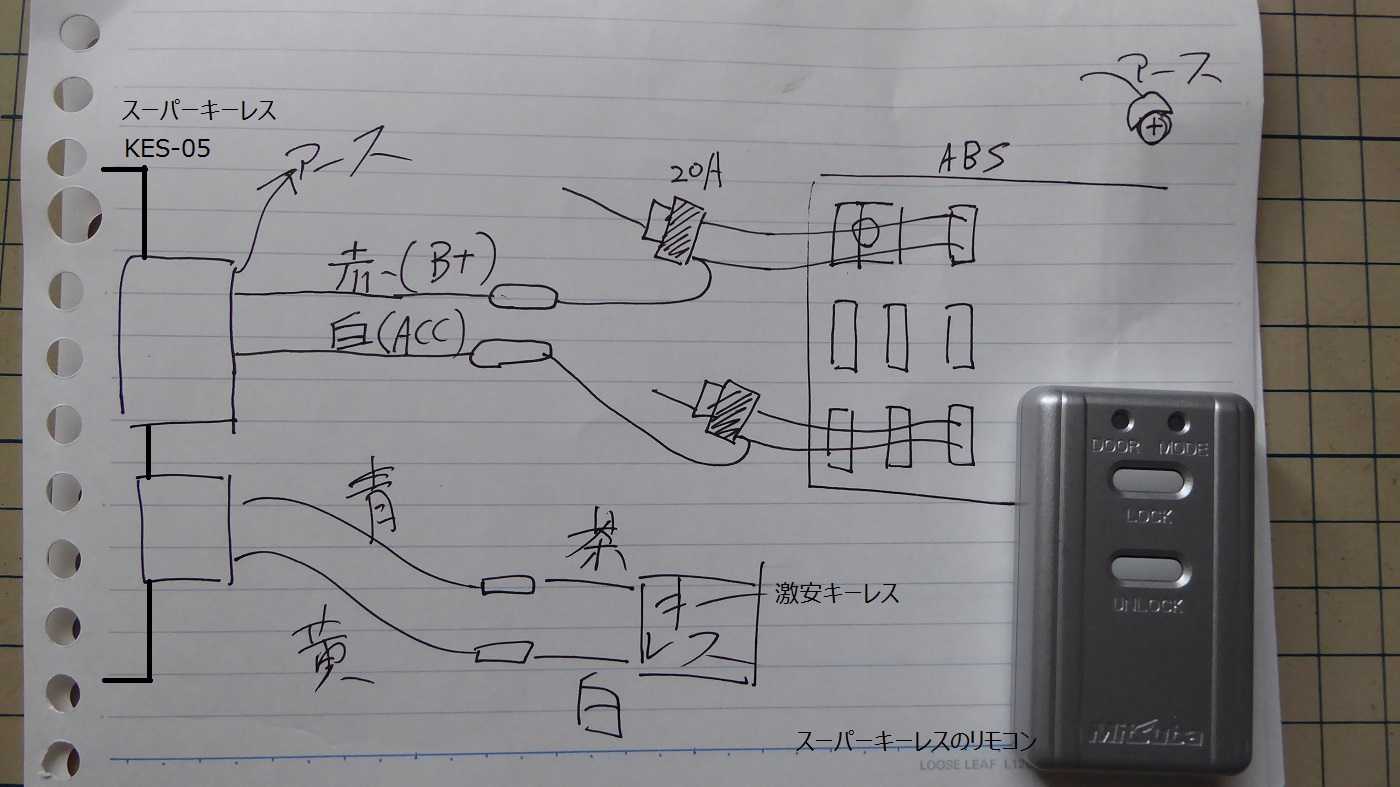 アース
スーパーキーレス
KES-05
アース
20A
ABS
赤-(B+)
白(ACC)
青
茶
黄
白
キーレス
激安キーレス
DOOR MODE
LOCK
UNLOCK
Mitsuba
スーパーキーレスのリモコン
LOOSE LEAF